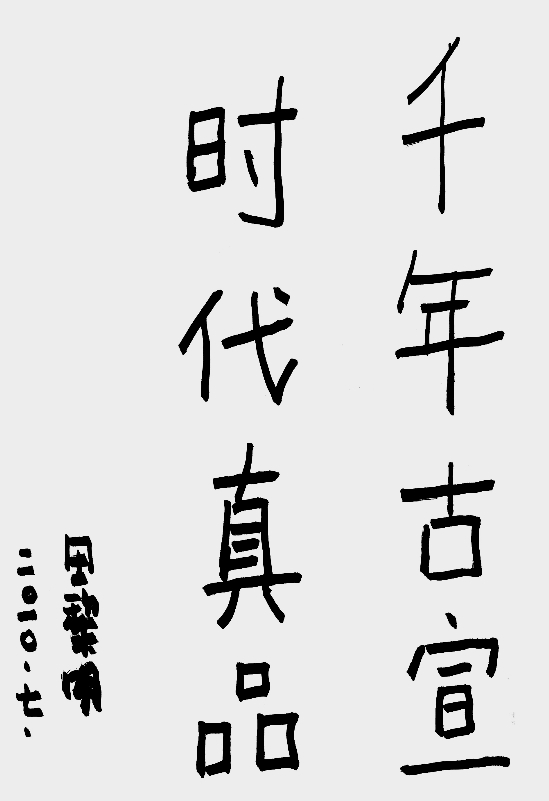 千年古宣
时代真品
二〇一〇·七·